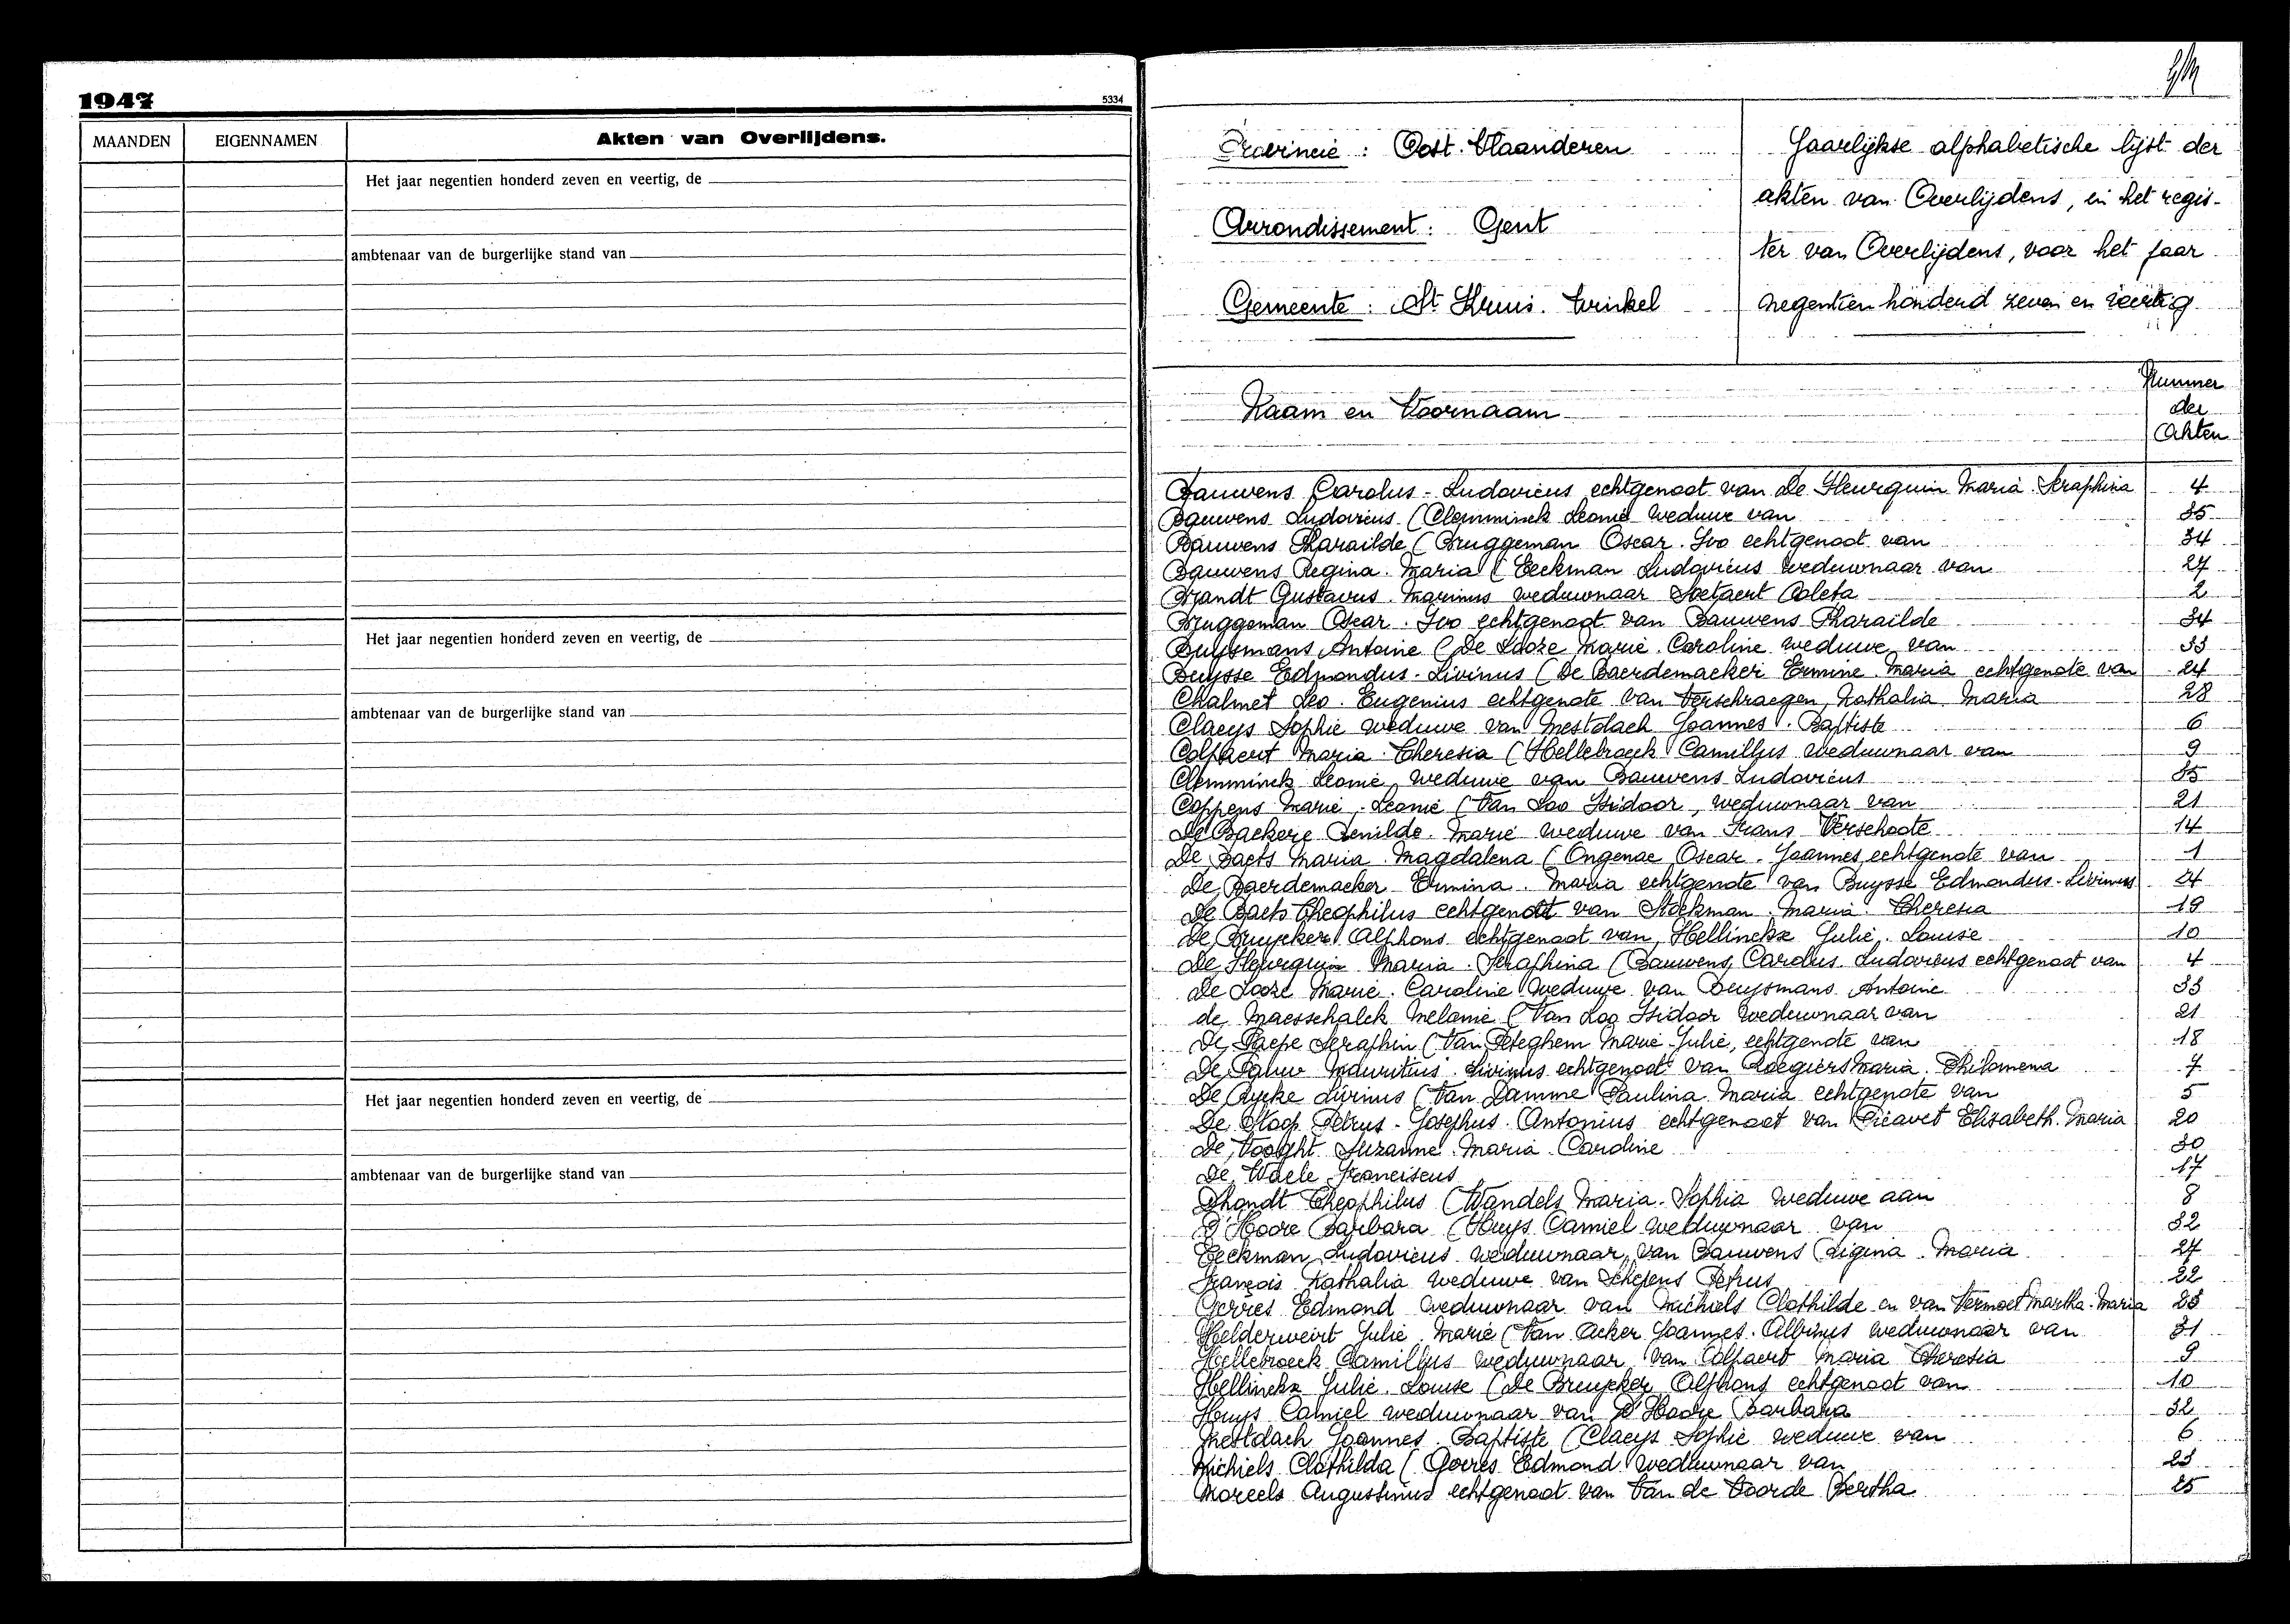 1947
5334
MAANDEN EIGENNAMEN Akten van Overlijdens.
Het jaar negentien honderd zeven en veertig, de
ambtenaar van de burgerlijke stand van
Het jaar negentien honderd zeven en veertig, de
ambtenaar van de burgerlijke stand van
Het jaar negentien honderd zeven en veertig, de
ambtenaar van de burgerlijke stand van
Provincie : Oost-Vlaanderen
Arrondissement : Gent
Gemeente : St Kruis-Winkel
Jaarlijkse alphabetische lijst der
akten van Overlijdens, in het regis-
ter van Overlijdens, voor het jaar
negentien honderd zeven en veertig
Naam en Voornaam
Nummer
der
Akten
Bauwens Carolus-Ludovicus echtgenoot van De Fleurquin Maria-Seraphina 4
Bauwens Ludovicus (Clemminck Leonie weduwe van 35
Bauwens Pharaïlde (Bruggeman Oscar-Ivo echtgenoot van 34
Bauwens Regina-Maria (Eeckman Ludovicus weduwnaar van 27
Brandt Gustavus-Marinus weduwnaar Soetaert Coleta 2
Bruggeman Oscar-Ivo echtgenoot van Bauwens Pharaïlde 34
Buysmans Antoine (De Looze Marie-Caroline weduwe van 33
Buysse Edmondus-Livinus (De Baerdemaeker Ermine-Maria echtgenote van 24
Chalmet Leo-Eugenius echtgenote van Verschraegen Nathalia-Maria 28
Claeys Sophie weduwe van Mestdach Joannes-Baptiste 6
Colpaert Maria-Theresia (Hellebroeck Camillus weduwnaar van 9
Clemminck Leonie, weduwe van Bauwens Ludovicus 35
Coppens Marie-Leonie (Van Loo Isidoor, weduwnaar van 21
De Backere Zenilde-Marie weduwe van Frans Verschoote 14
De Baets Maria-Magdalena (Ongenae Oscar-Joannes echtgenote van 1
De Baerdemaeker Ermina-Maria echtgenote van Buysse Edmondus-Livinus 24
De Baets Theophilus echtgenoot van Stockman Maria-Theresia 19
De Bruycker Alphons echtgenoot van Hellinckx Julie-Louise 10
De Fleurquin Maria-Seraphina (Bauwens Carolus-Ludovicus echtgenoot van 4
De Looze Marie-Caroline weduwe van Buysmans Antoine 33
de Maesschalck Melanie (Van Loo Isidoor weduwnaar van 21
De Paepe Seraphin (Van Peteghem Marie-Julie, echtgenote van 18
De Pauw Mauritius-Livinus echtgenoot van Roegiers Maria-Philomena 7
De Rycke Livinus (Van Damme Paulina-Maria echtgenote van 5
De Stoop Petrus-Josephus-Antonius echtgenoot van Piéavet Elisabeth-Maria 20
De Vooght Suzanne-Maria-Caroline 30
De Waele Franciscus 17
Dhondt Theophilus (Wandels Maria-Sophia weduwe aan 8
D'Hoore Barbara (Huys Camiel weduwnaar van 32
Eeckman Ludovicus weduwnaar van Bauwens Regina-Maria 27
François Nathalia weduwe van Schepens Petrus 22
Gorres Edmond weduwnaar van Michiels Clothilde en van Vermoet Martha-Maria 23
Helderweirt Julie-Marie (Van Acker Joannes-Albinus weduwnaar van 31
Hellebroeck Camillus weduwnaar van Colpaert Maria Theresia 9
Hellinckx Julie-Louise (De Bruycker Alphons echtgenoot van 10
Huys Camiel weduwnaar van D'Hoore Barbara 32
Mestdach Joannes-Baptiste (Claeys Sophie weduwe van 6
Michiels Clothilda (Gorres Edmond weduwnaar van 23
Moreels Augustinus echtgenoot van Van de Voorde Bertha 25